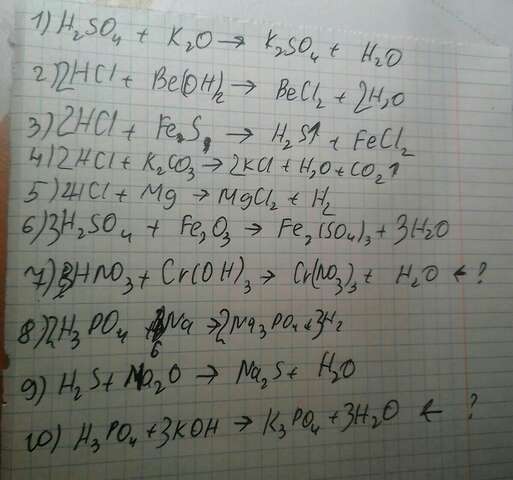 1) H₂SO₄ + K₂O → K₂SO₄ + H₂O
2) 2HCl + Be(OH)₂ → BeCl₂ + 2H₂O
3) 2HCl + FeS → H₂S↑ + FeCl₂
4) 2HCl + K₂CO₃ → 2KCl + H₂O + CO₂↑
5) 2HCl + Mg → MgCl₂ + H₂
6) 3H₂SO₄ + Fe₂O₃ → Fe₂(SO₄)₃ + 3H₂O
7) 3HNO₃ + Cr(OH)₃ → Cr(NO₃)₃ + H₂O ← ?
8) 2H₃PO₄ 6Na → 2Na₃PO₄ + 3H₂
9) H₂S + Na₂O → Na₂S + H₂O
10) H₃PO₄ + 3KOH → K₃PO₄ + 3H₂O ← ?